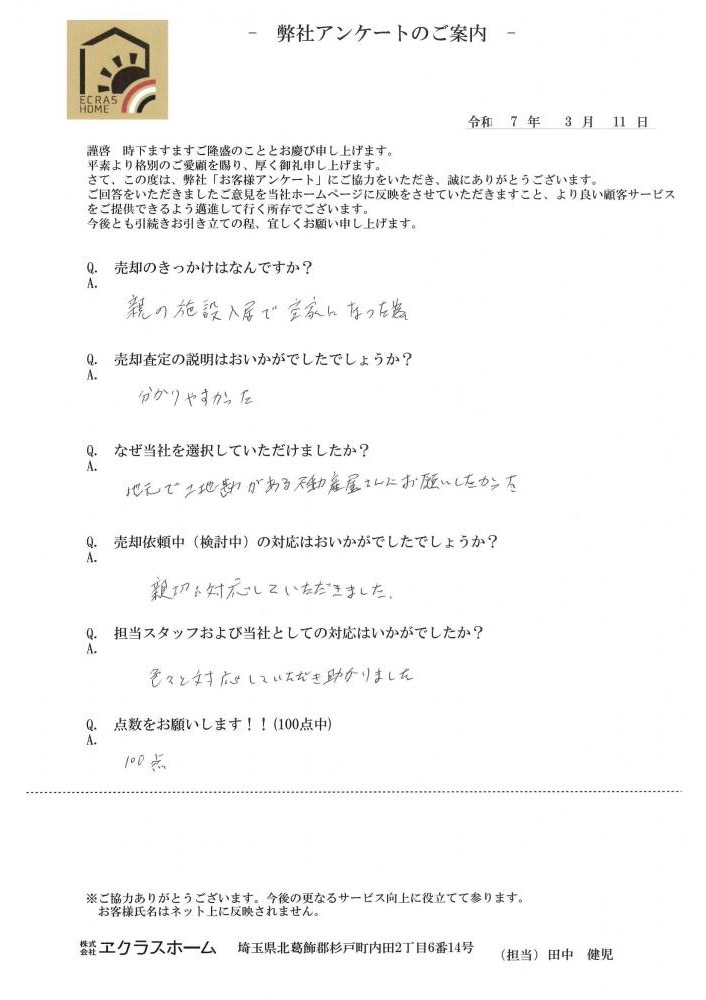 ECRAS
HOME
- 弊社アンケートのご案内 -
令和 7 年 3 月 11 日
謹啓 時下ますますご隆盛のこととお慶び申し上げます。
平素より格別のご愛顧を賜り、厚く御礼申し上げます。
さて、この度は、弊社「お客様アンケート」にご協力をいただき、誠にありがとうございます。
ご回答をいただきましたご意見を当社ホームページに反映をさせていただきますこと、より良い顧客サービス
をご提供できるよう邁進して行く所存でございます。
今後とも引続きお引き立ての程、宜しくお願い申し上げます。
Q. 売却のきっかけはなんですか?
A.
親の施設入居で空家になった為
Q. 売却査定の説明はおいかがでしたでしょうか?
A.
分かりやすかった
Q. なぜ当社を選択していただけましたか?
A.
地元で土地勘がある不動産屋さんにお願いしたかった
Q. 売却依頼中(検討中)の対応はおいかがでしたでしょうか?
A.
親切に対応していただきました.
Q. 担当スタッフおよび当社としての対応はいかがでしたか?
A.
色々と対応していただき助かりました
Q. 点数をお願いします!!(100点中)
A.
100点
※ご協力ありがとうございます。今後の更なるサービス向上に役立てて参ります。
お客様氏名はネット上に反映されません。
株式会社 ヱクラスホーム 埼玉県北葛飾郡杉戸町内田2丁目6番14号 (担当) 田中 健児